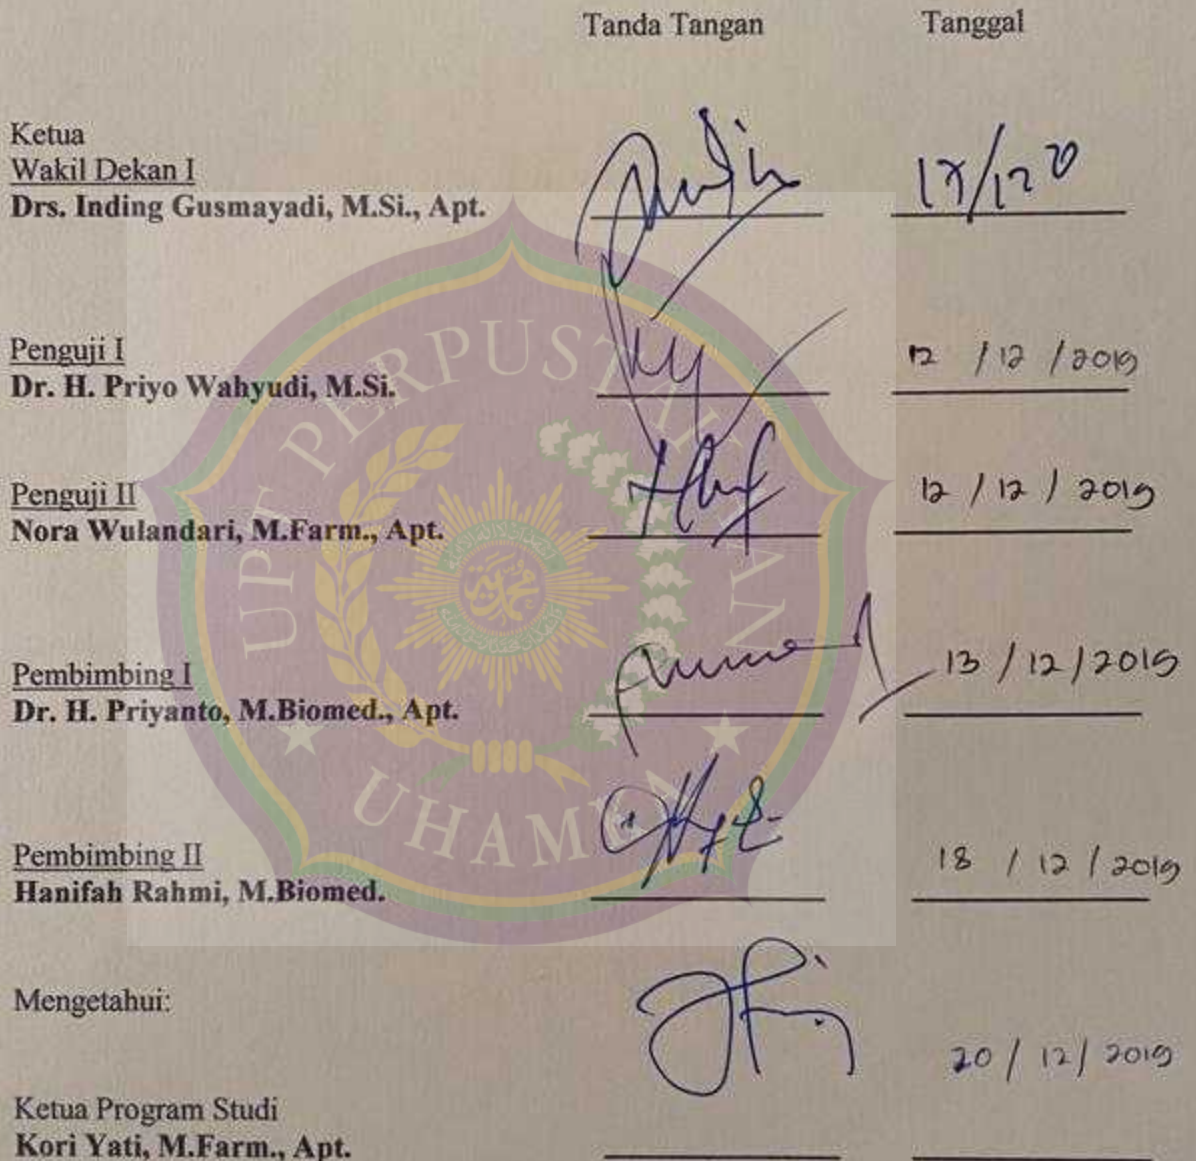 Tanda Tangan Tanggal
Ketua
Wakil Dekan I
Drs. Inding Gusmayadi, M.Si., Apt.
Penguji I
Dr. H. Priyo Wahyudi, M.Si. 12 / 12 / 2019
Penguji II
Nora Wulandari, M.Farm., Apt. 12 / 12 / 2019
Pembimbing I
Dr. H. Priyanto, M.Biomed., Apt. 13 / 12 / 2019
Pembimbing II
Hanifah Rahmi, M.Biomed. 18 / 12 / 2019
Mengetahui:
20 / 12 / 2019
Ketua Program Studi
Kori Yati, M.Farm., Apt.
UPT PERPUSTAKAAN
UHAMKA